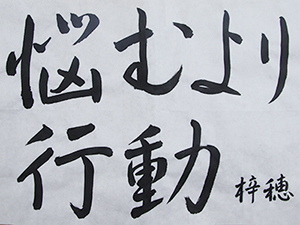 悩むより
行動
梓穂